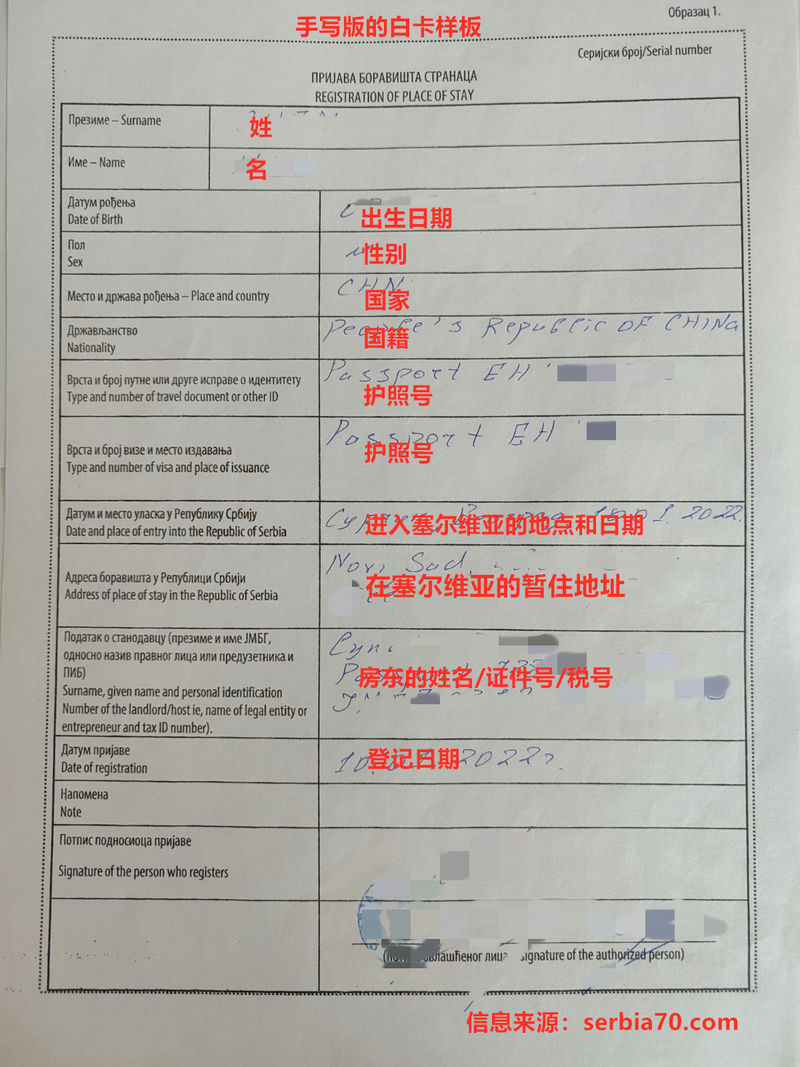 Образац 1.
手写版的白卡样板
Серијски број/Serial number
ПРИЈАВА БОРАВИШТА СТРАНАЦА
REGISTRATION OF PLACE OF STAY
Презиме – Surname
姓
Име – Name
名
Датум рођења
Date of Birth
出生日期
Пол
Sex
性别
Место и држава рођења – Place and country
CHN
国家
Држављанство
Nationality
People's Republic OF CHINa
国籍
Врста и број путне или друге исправе о идентитету
Type and number of travel document or other ID
Passport EH
护照号
Врста и број визе и место издавања
Type and number of visa and place of issuance
Passport EH
护照号
Датум и место уласка у Републику Србију
Date and place of entry into the Republic of Serbia
2022.
进入塞尔维亚的地点和日期
Адреса боравишта у Републици Србији
Address of place of stay in the Republic of Serbia
Novi Sad,
在塞尔维亚的暂住地址
Податак о станодавцу (презиме и име ЈМБГ,
односно назив правног лица или предузетника и
ПИБ)
Surname, given name and personal identification
Number of the landlord/host ie, name of legal entity or
entrepreneur and tax ID number).
房东的姓名/证件号/税号
Датум пријаве
Date of registration
10. 2022г.
登记日期
Напомена
Note
Потпис подносиоца пријаве
Signature of the person who registers
лица signature of the authorized person)
信息来源：serbia70.com